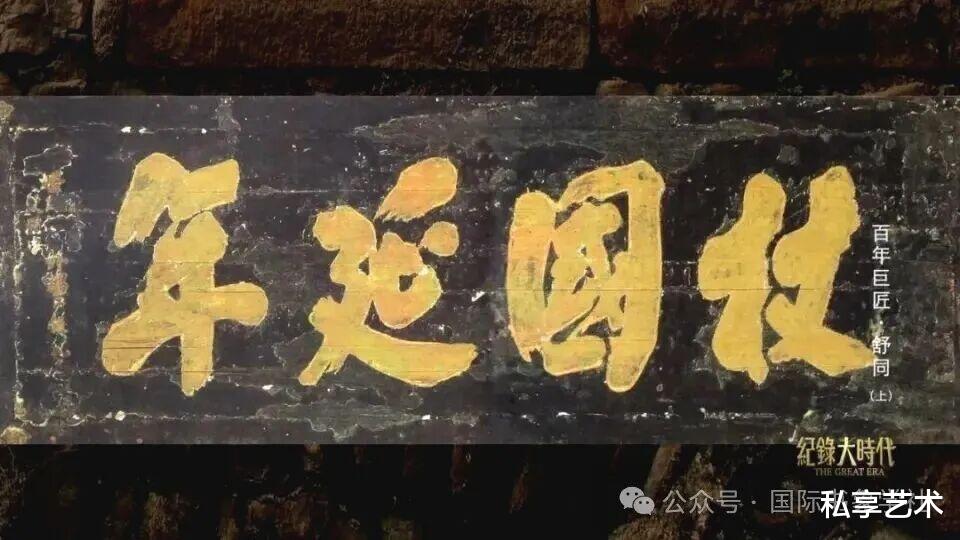 杖國延年
百年巨匠 舒同（上）
紀錄大時代
THE GREAT ERA
公众号 · 国际
私享艺术